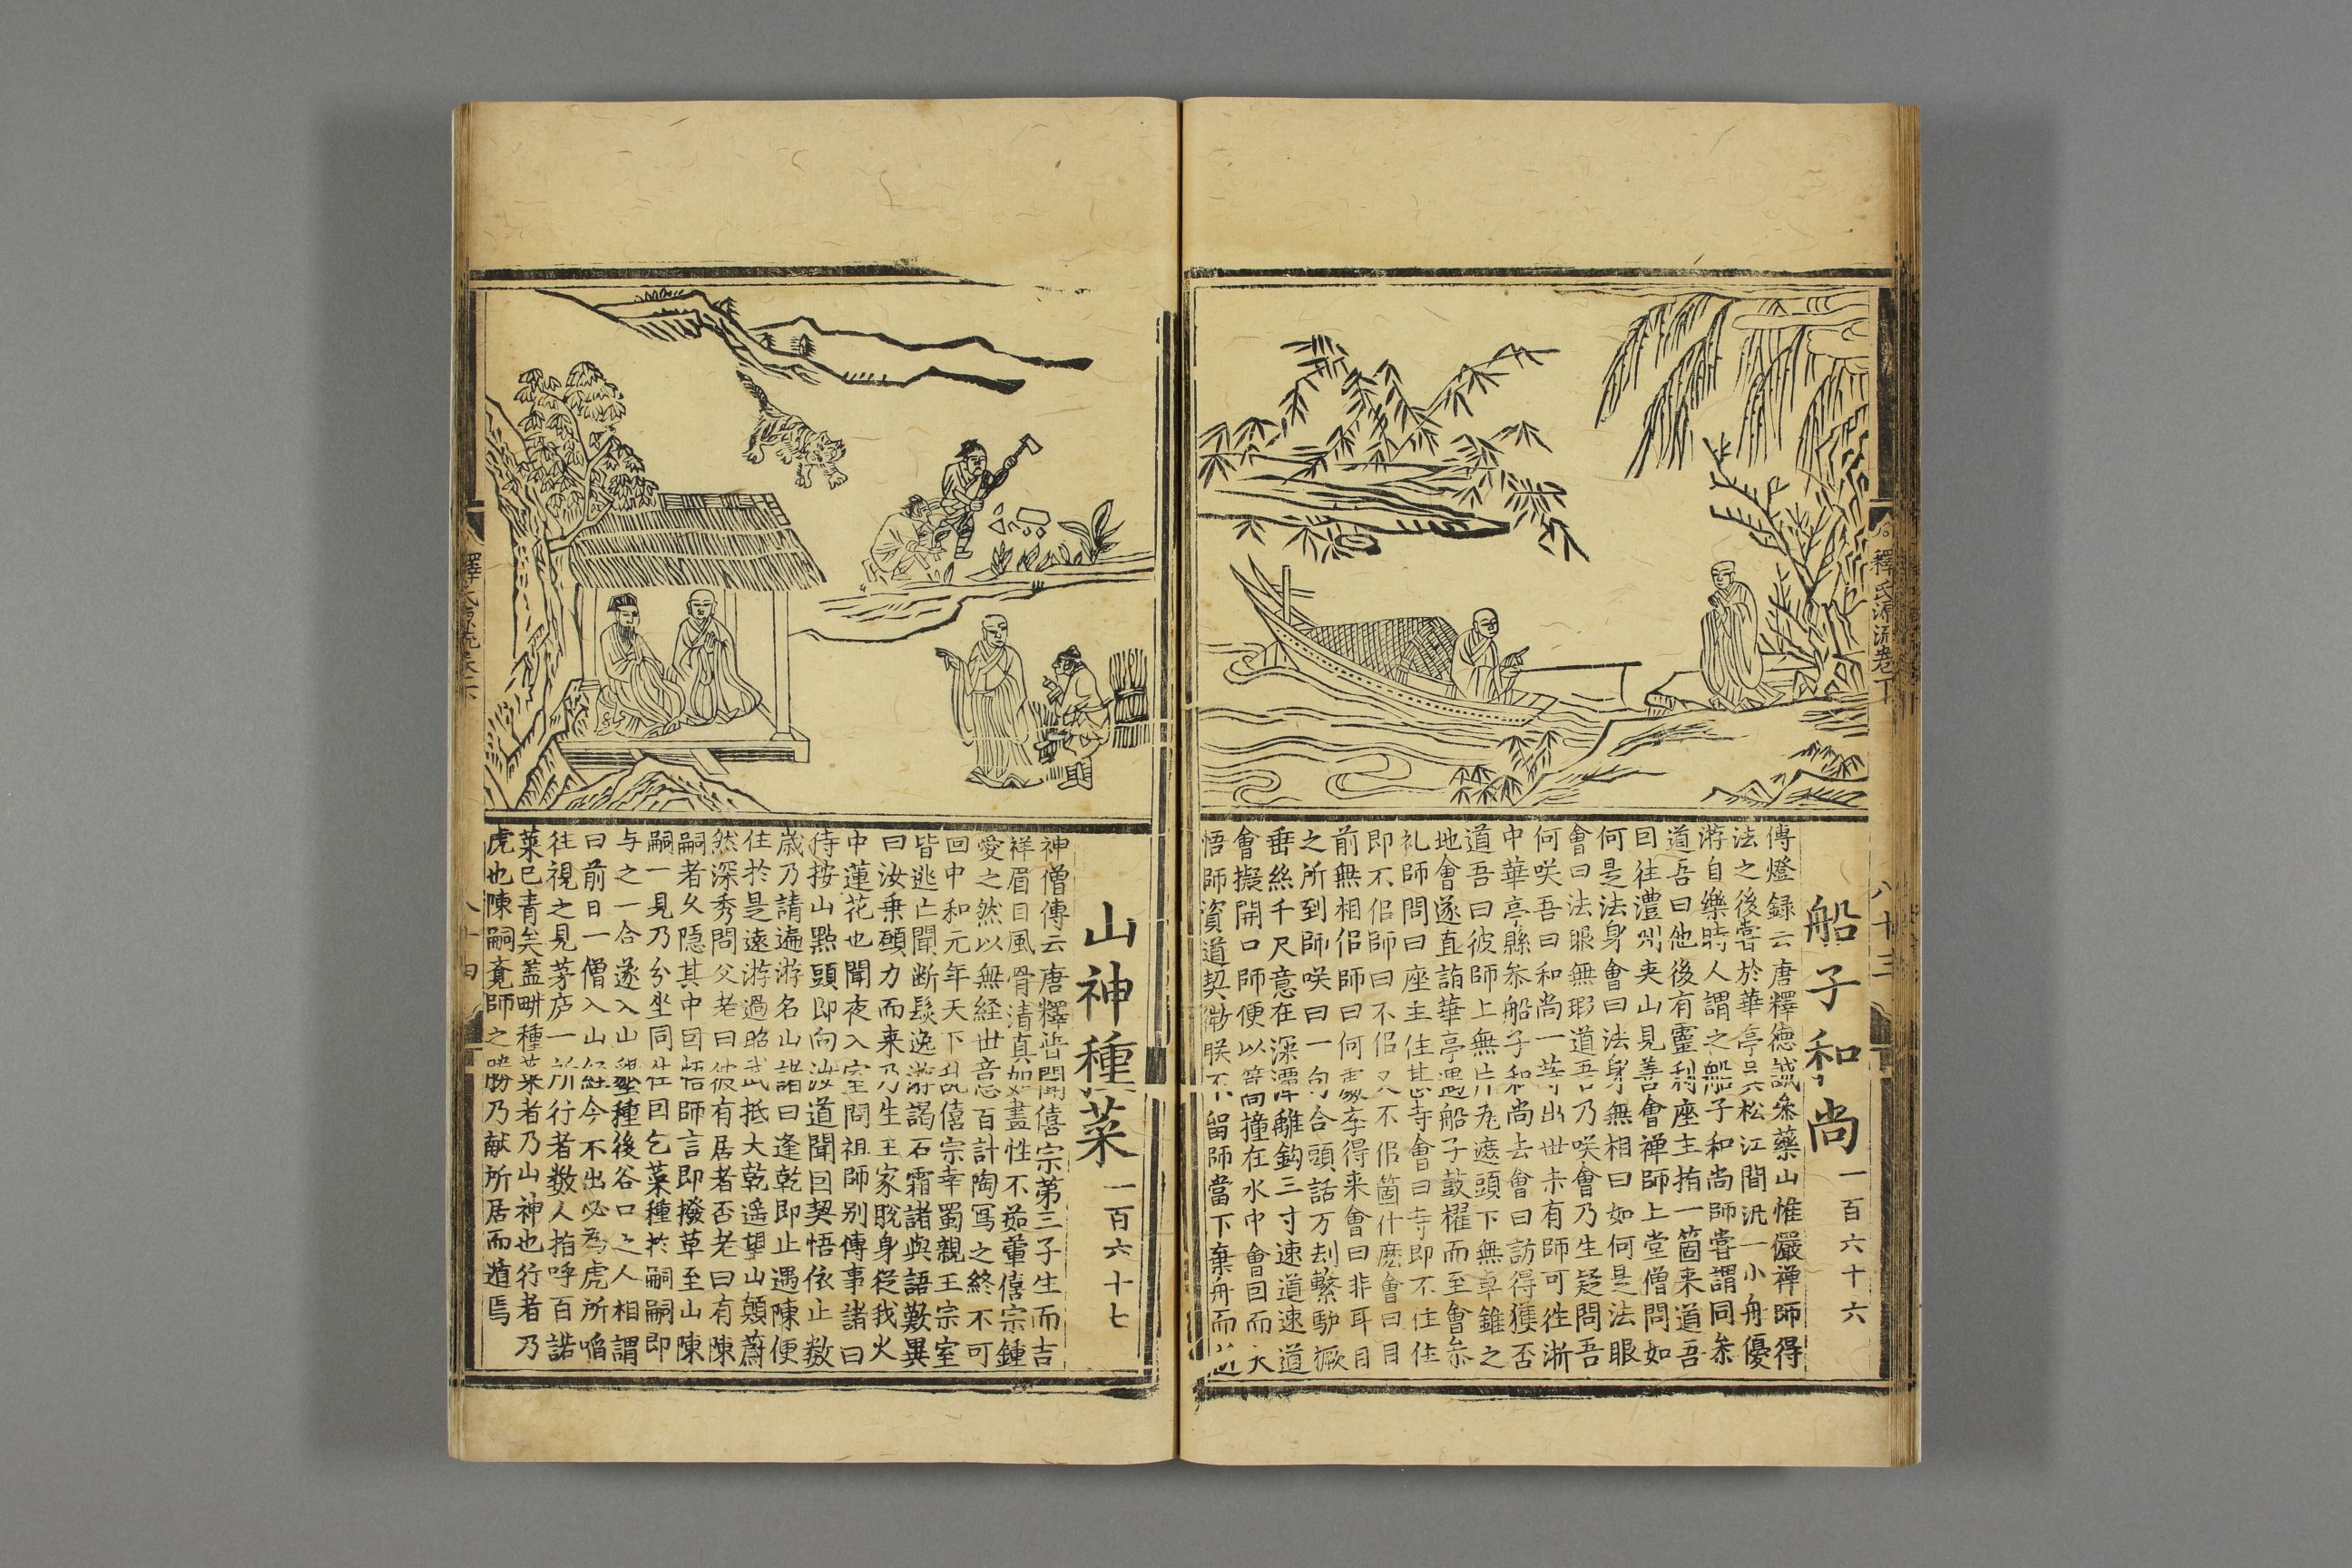 釋氏源流卷下
八十三
船子和尚 一百六十六
傳燈録云唐釋德誠叅藥山惟儼禅師得
法之後甞於華亭吳松江間汎一小舟優
游自樂時人謂之船子和尚師甞謂同叅
道吾曰他後有靈利座主指一箇来道吾
回往澧州夹山見善會禅師上堂僧問如
何是法身會曰法身無相曰如何是法眼
會曰法眼無瑕道吾乃咲會乃生疑問吾
何咲吾曰和尚一等出世未有師可徃浙
中華亭縣叅船子和尚去會曰訪得獲否
道吾曰彼師上無片瓦遮頭下無卓錐之
地會遂直詣華亭遇船子鼓櫂而至會叅
礼師問曰座主住甚寺會曰寺即不住住
即不佀師曰不佀又不佀箇什麽會曰目
前無相佀師曰何處孝得来會曰非耳目
之所到師咲曰一句合頭話万刦繫馿橛
垂絲千尺意在深潭離鈎三寸速道速道
會擬開口師便以篙撞在水中會回而大
悟師資道契微朕不留師當下棄舟而逝
山神種菜 一百六十七
神僧傳云唐釋普聞僖宗第三子生而吉
祥眉目風骨清真如畫性不茹葷僖宗鍾
愛之然以無経世音意百計陶冩之終不可
回中和元年天下乱僖宗幸蜀親王宗室
皆逃亡聞断髮逸游謁石霜諸與語歎異
曰汝乗頤力而来乃生王家脫身從我火
中蓮花也聞夜入室問祖師别傳事諸曰
待按山㸃頭即向汝道聞回契悟依止数
歳乃請遍游名山諸曰逢乾即止遇陳便
住扵是遠游過昭武抵大乾遥望山顛蔚
然深秀問父老曰彼有居者否老曰有陳
嗣者久隠其中回悟師言即撥草至山陳
嗣一見乃分坐同住回乞菜種扵嗣嗣即
与之一合遂入山墾種後谷口之人相謂
曰前日一僧入山経今不出必為虎所啗
往視之見茅庐一所行者数人指呼百諾
菜已青矣盖畊種菜者乃山神也行者乃
虎也陳嗣竟師之勝乃献所居而遁焉